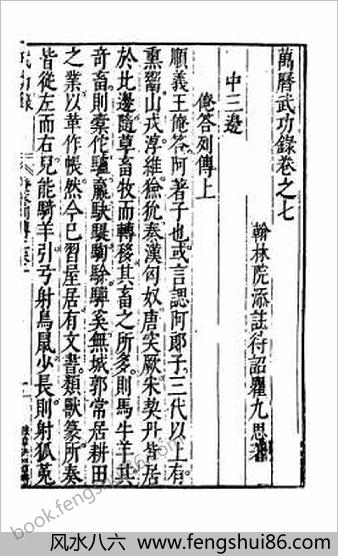 萬曆武功錄卷之七
翰林院添註待詔瞿九思著
中三邊
俺答列傳上
順義王俺答阿著子也或言諰阿郎子三代以上有
熏鬻山戎淳維獫狁秦漢匈奴唐突厥宋契丹皆居
於北邊隨草畜牧而轉移其畜之所多則馬牛羊其
奇畜則橐佗驢驘駃騠騊駼驒奚無城郭常居耕田
之業以革作帳然今已習屋居有文書類獸篆所奏
皆從左而右兒能騎羊引弓射鳥鼠少長則射狐菟
武功錄
book.fengshui86.com
风水八六 www.fengshui86.com